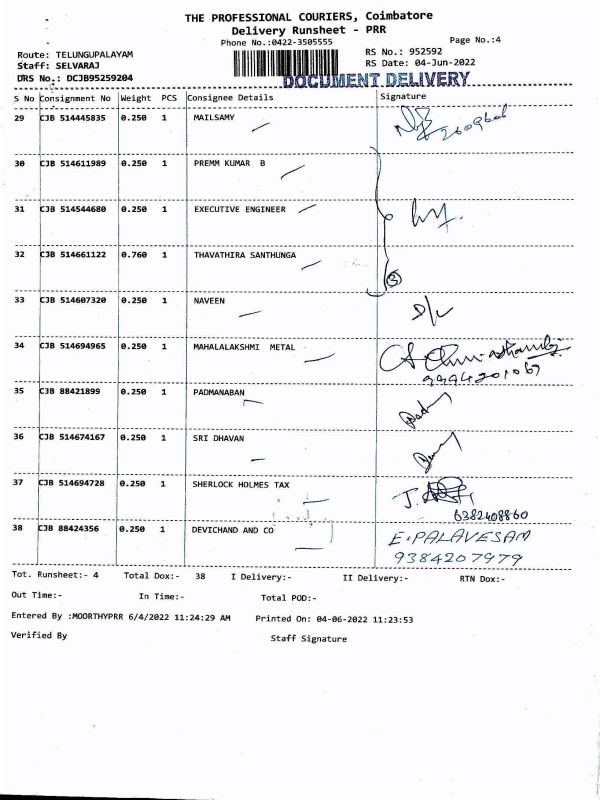 THE PROFESSIONAL COURIERS, Coimbatore
Delivery Runsheet - PRR
Phone No.:0422-3505555 Page No.:4
Route: TELUNGUPALAYAM RS No.: 952592
Staff: SELVARAJ RS Date: 04-Jun-2022
DRS No.: DCJB95259204 DOCUMENT DELIVERY
S No Consignment No Weight PCS Consignee Details Signature
29 CJB 514445835 0.250 1 MAILSAMY
30 CJB 514611989 0.250 1 PREMM KUMAR B
31 CJB 514544680 0.250 1 EXECUTIVE ENGINEER
32 CJB 514661122 0.760 1 THAVATHIRA SANTHUNGA
3
33 CJB 514607320 0.250 1 NAVEEN D/L
34 CJB 514694965 0.250 1 MAHALALAKSHMI METAL
35 CJB 88421899 0.250 1 PADMANABAN
36 CJB 514674167 0.250 1 SRI DHAVAN
37 CJB 514694728 0.250 1 SHERLOCK HOLMES TAX
6382408860
38 CJB 88424356 0.250 1 DEVICHAND AND CO E.PALAVESAM
9384207979
Tot. Runsheet:- 4 Total Dox:- 38 I Delivery:- II Delivery:- RTN Dox:-
Out Time:- In Time:- Total POD:-
Entered By :MOORTHYPRR 6/4/2022 11:24:29 AM Printed On: 04-06-2022 11:23:53
Verified By Staff Signature